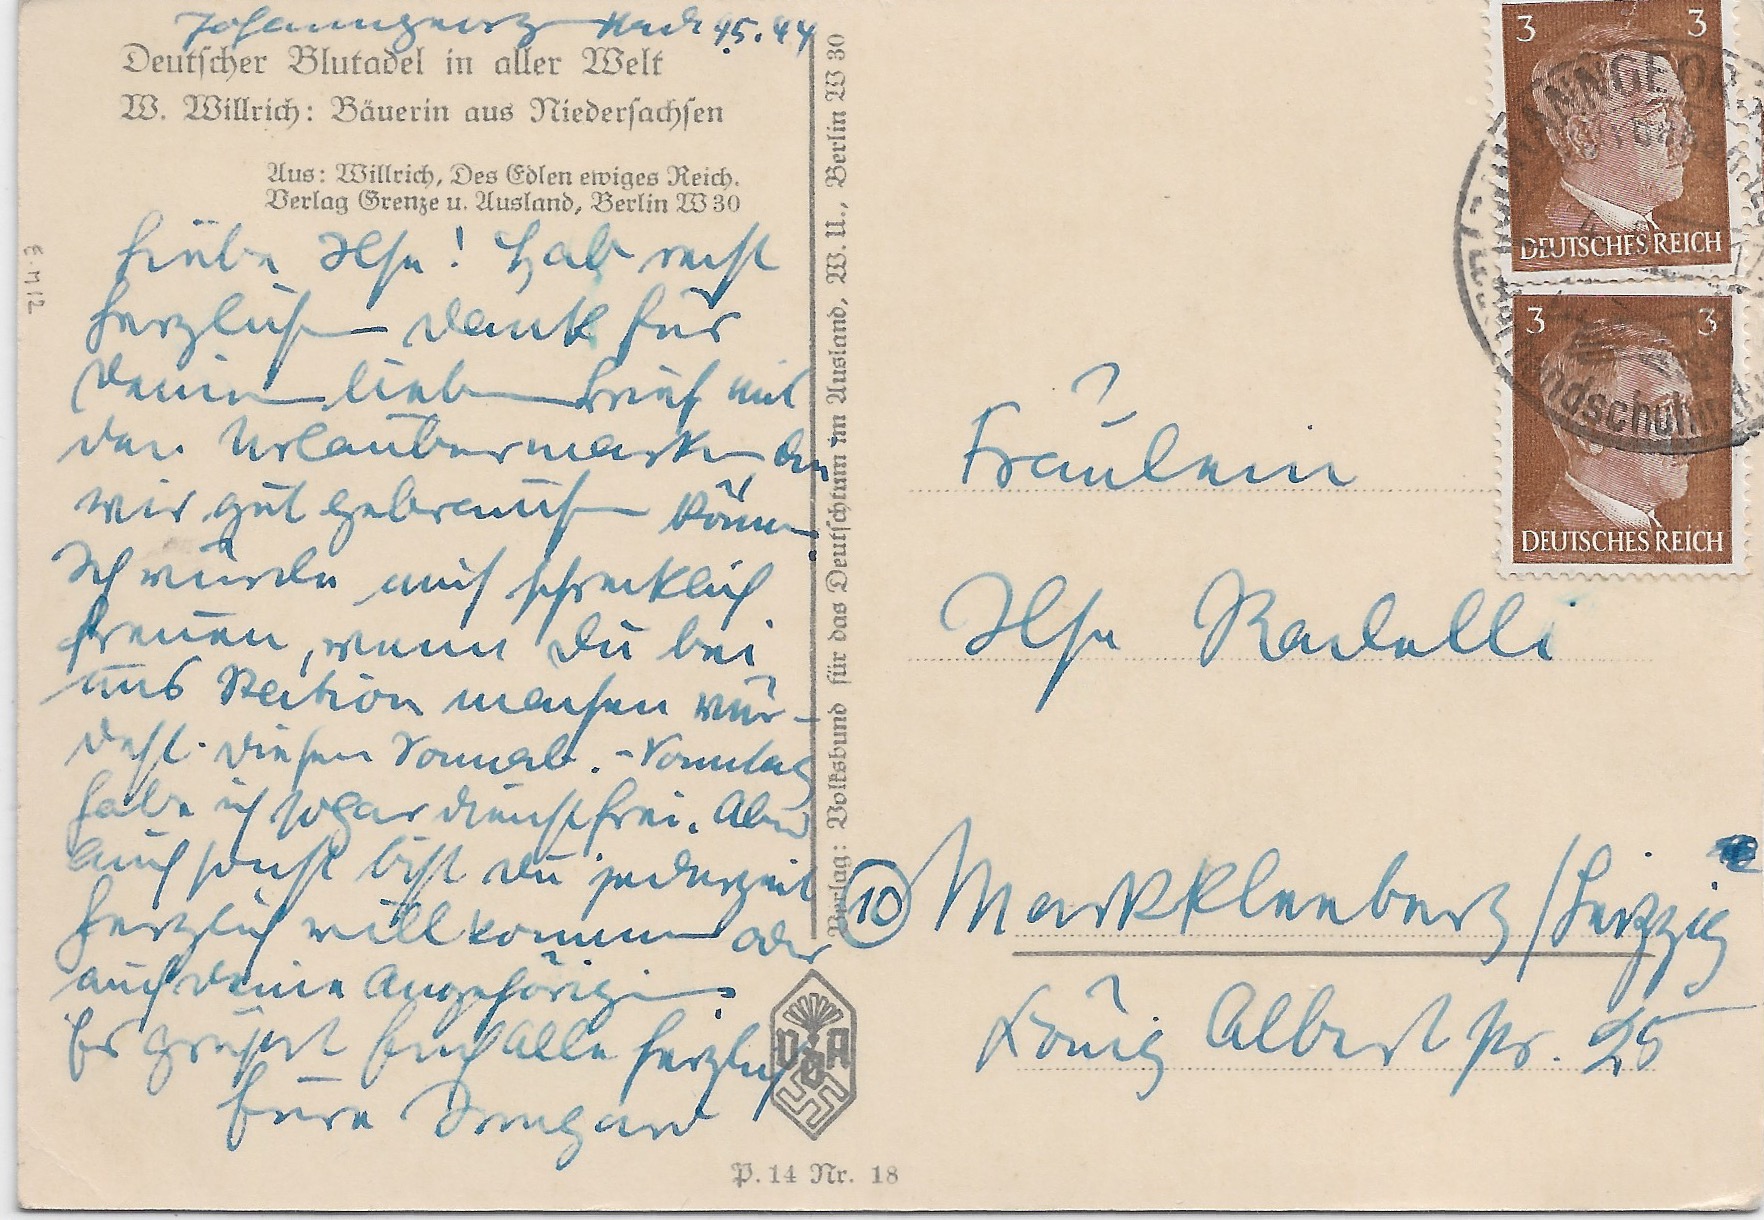 Johanngeorgstadt 15.44
Deutscher Blutadel in aller Welt
W. Willrich: Bäuerin aus Niedersachsen
Aus: Willrich, Des Edlen ewiges Reich.
Verlag Grenze u. Ausland, Berlin W 30
Liebe Ilse! Hab recht
herzlichen Dank für
Deinen lieben Brief mit
den Urlaubermarken, die
wir gut gebrauchen können.
Ich würde mich schrecklich
freuen, wenn Du bei
uns Station machen wür-
dest. Diesen Sonnab.-Sonntag
habe ich sogar dienstfrei. Aber
auch sonst bist Du jederzeit
herzlich willkommen oder
auch Deine Angehörigen.
Es grüßt Euch alle herzlich
Eure Irmgard
E.M 12
Verlag: Volksbund für das Deutschtum im Ausland, W. U., Berlin W 30
VDA
P. 14 Nr. 18
3 3
DEUTSCHES REICH
3 3
DEUTSCHES REICH
Fräulein
Ilse Radelli
10 Markkleeberg/Leipzig
König Albert Str. 25